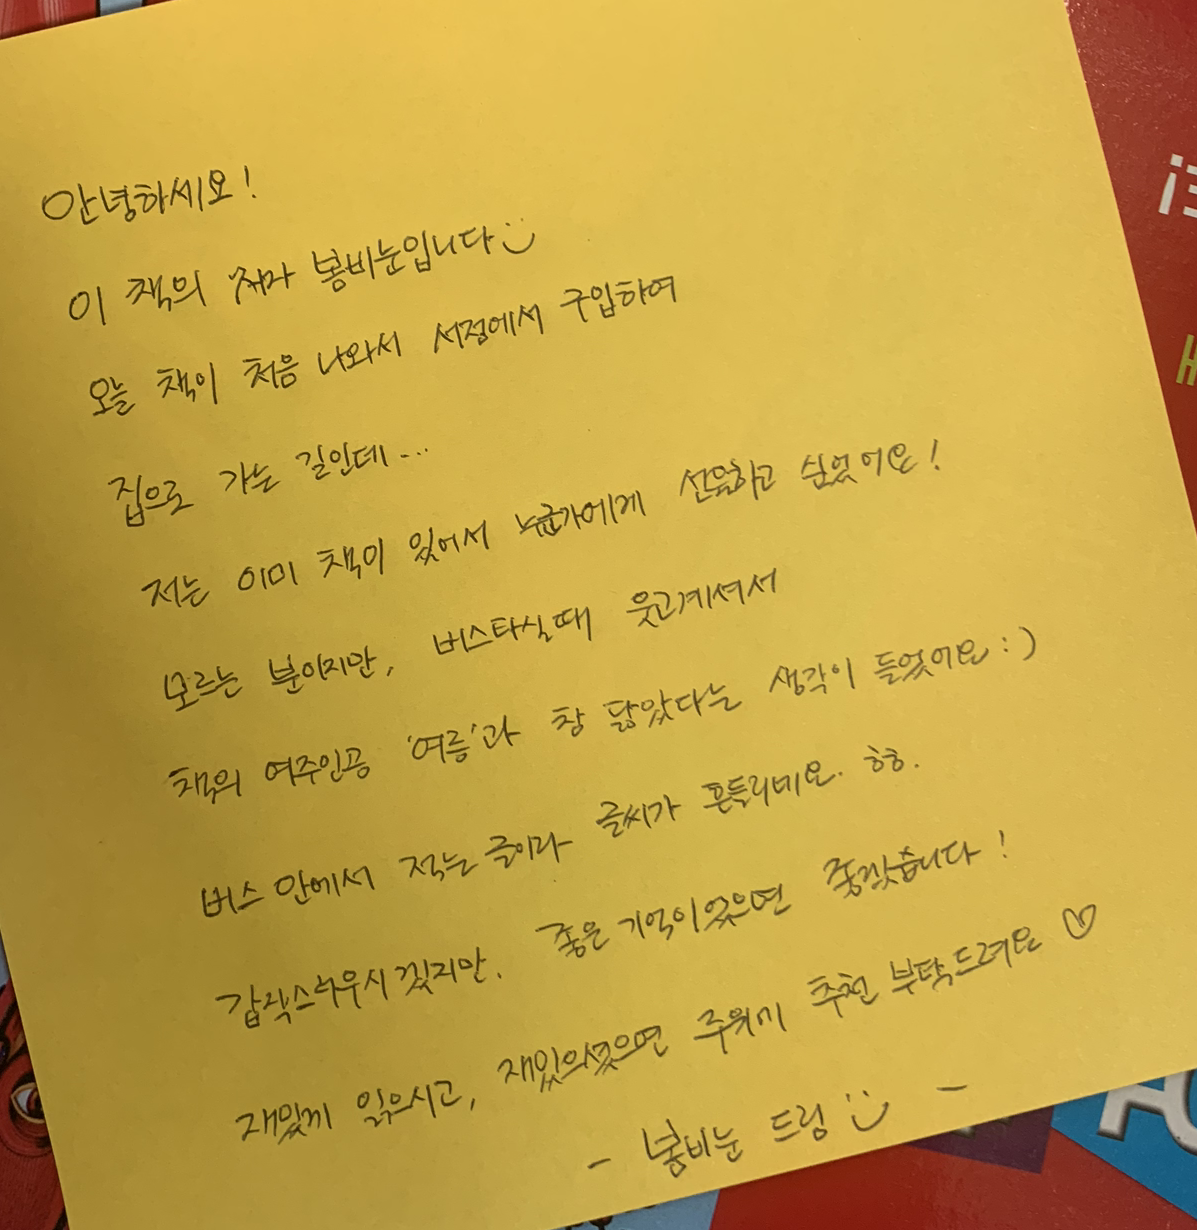 안녕하세요!
이 책의 저자 봉비눈입니다
오늘 책이 처음 나와서 서점에서 구입하여
집으로 가는 길인데...
저는 이미 책이 있어서 누군가에게 선물하고 싶었어요!
모르는 분이지만, 버스타실때 웃고계셔서
책의 여주인공 '여름'과 참 닮았다는 생각이 들었어요 :)
버스 안에서 적는 글이라 글씨가 흔들리네요. ㅎㅎ.
갑작스러우시겠지만, 좋은 기억이었으면 좋겠습니다!
재밌게 읽으시고, 재밌으셨으면 주위에 추천 부탁드려요 ♡
- 봉비눈 드림 -